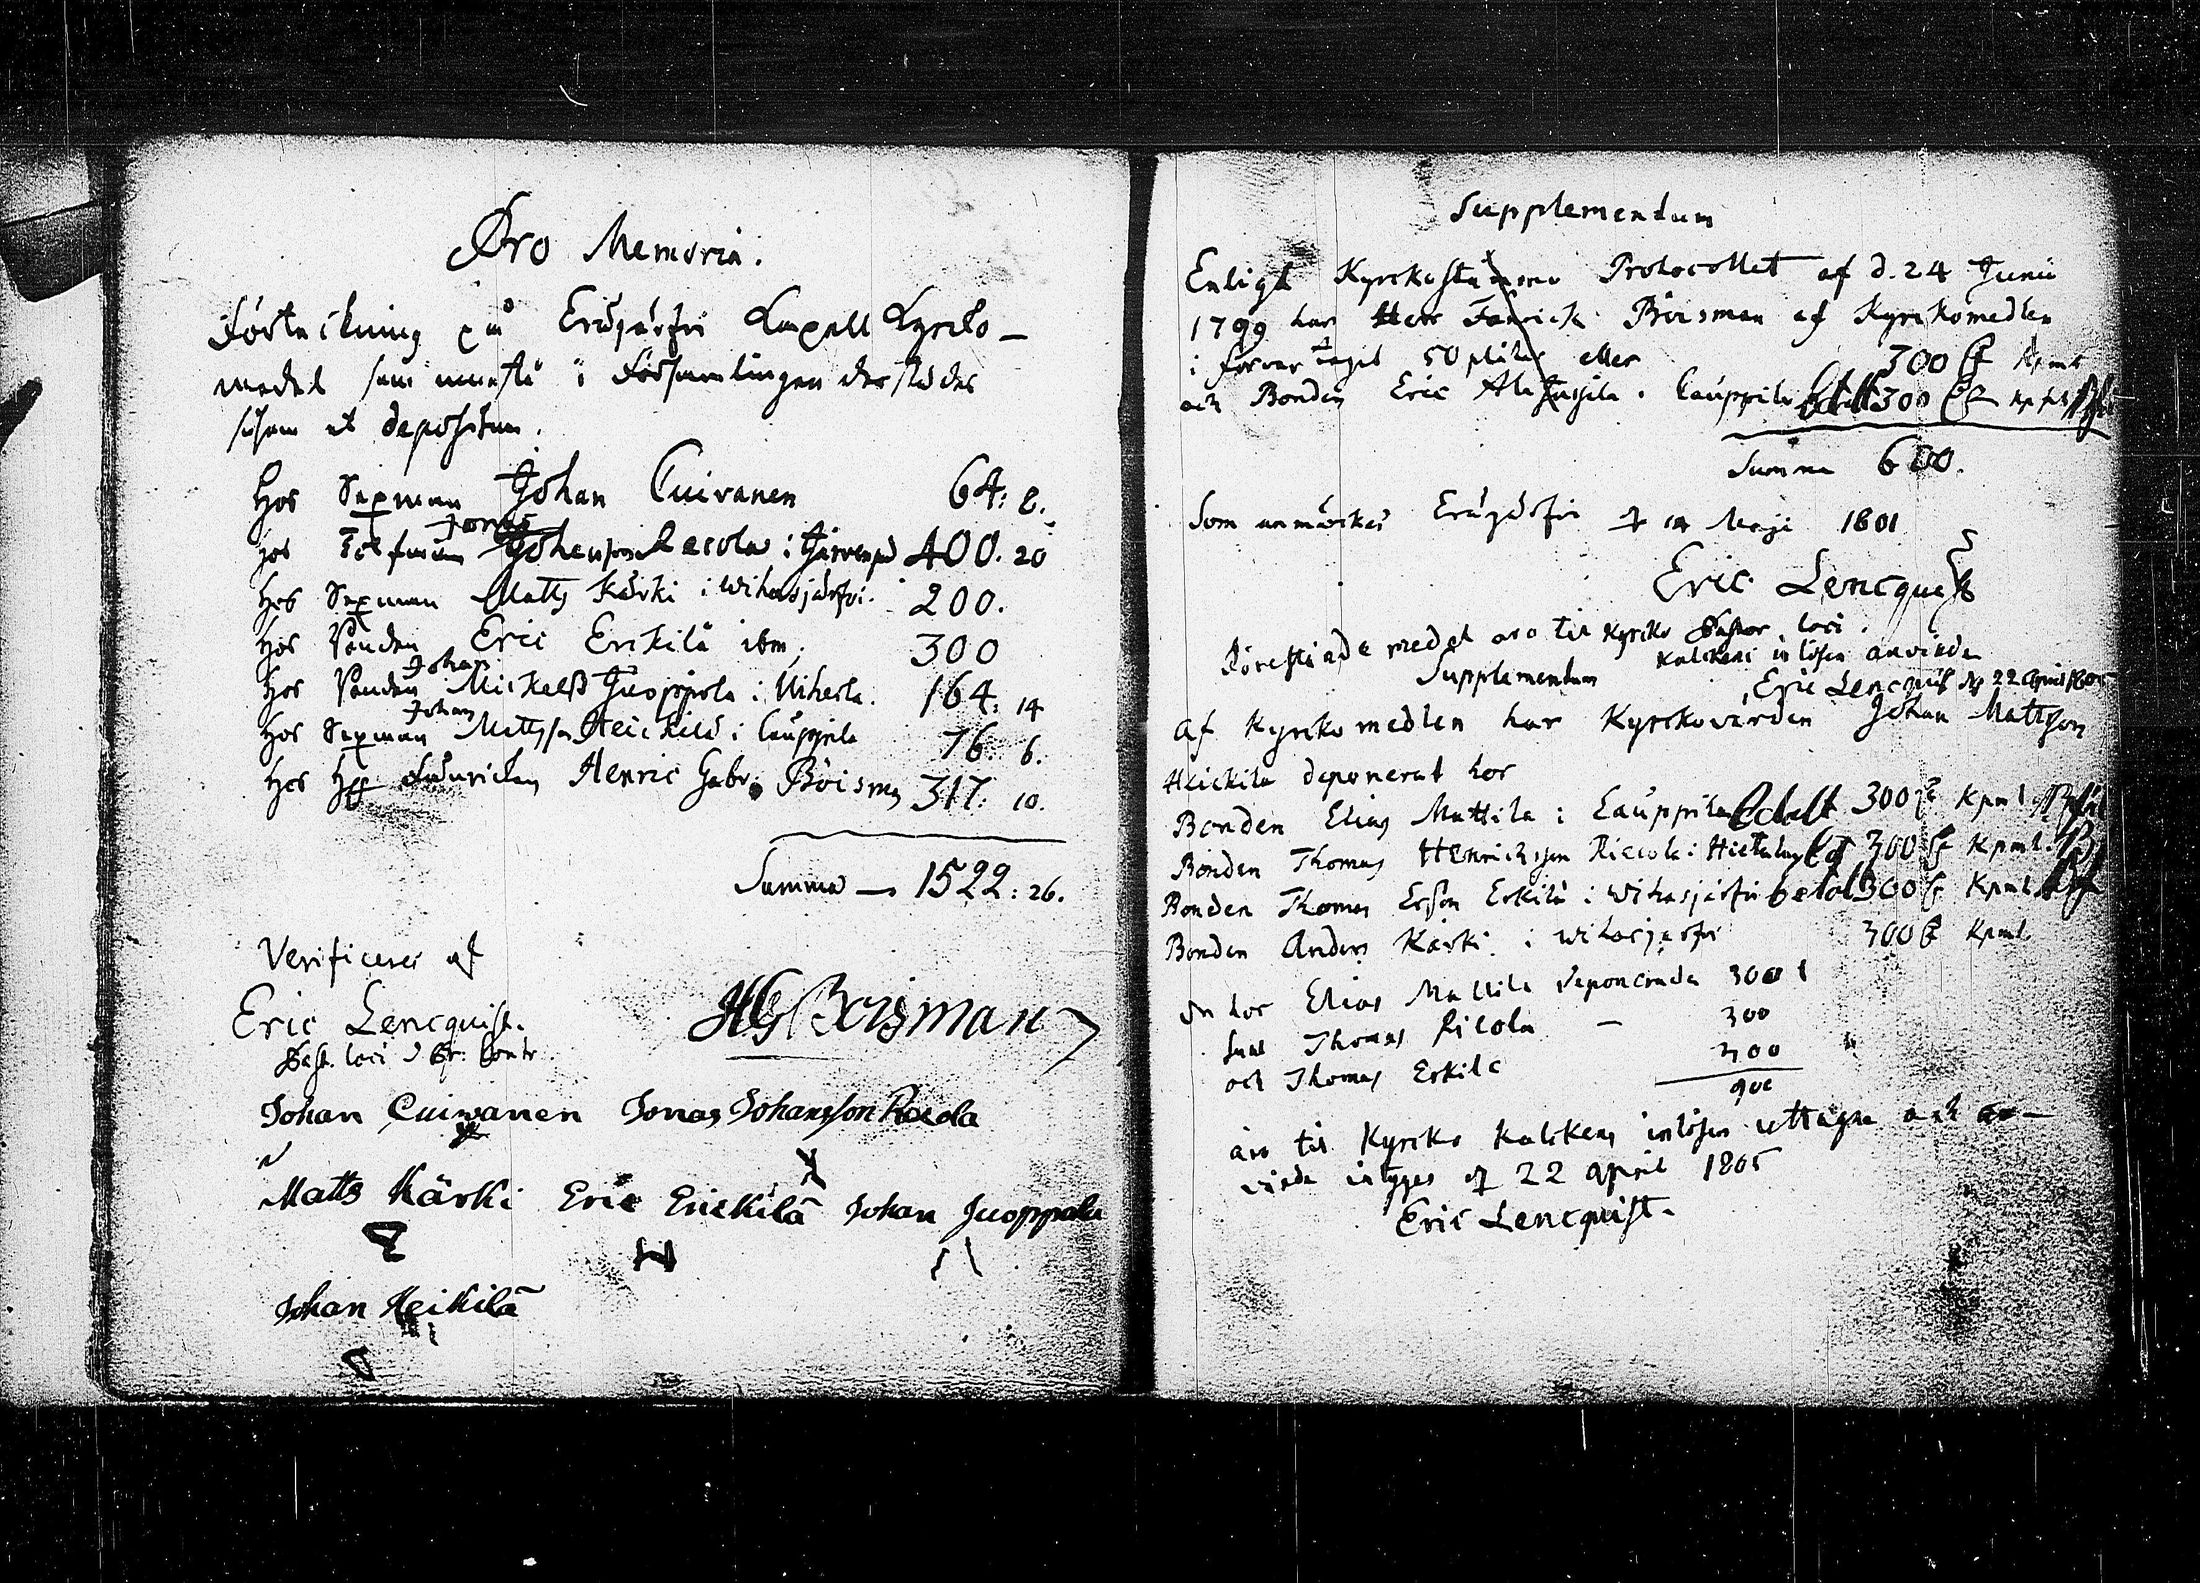 Pro Memoria.
Förteckning på Eräjärfvi Capell Kyrko-
medel som innestå i Församlingen derstädes
såsom et depositum.
Hos Sexman Johan Cuivanen 64: 8.
Hos Tolfman Jonas Johansson Racola i Järvenpä 400. 20
Hos Sexman Matts Kärki i Wihasjärfvi. 200.
Hos Bonden Eric Erickilä ibm. 300
Hos Bonden Johan Mickelss Juoppola i Uiherla. 164. 14
Hos Sexman Johan Mattsson Heickilä i Lauppila 76. 6.
Hos Hr Fändricken Henric Gabr. Böisman 317. 10.
Summa — 1522: 26.
Verificeras af
Eric Lencquist.
Past. loci & Pr. Contr.
HG Boisman
Johan Cuiwanen Jonas Johansson Racola
Matts Kärki Eric Erickilä Johan Juoppala
Johan Heikilä
Supplementum
Enligt Kyrkostämmo Protocollet af d. 24 Junii
1799 har Herr Fänrick Böisman af Kyrkomedlen
i förvar tagit 50 plåtar eller 300 Kpmt
och Bonden Eric Ala i Lauppila betalt 300
Summa 600.
Som anmärkes Eräjärfvi d 14 Maji 1801
Eric Lencquist
Pastor loci.
Förestående medel äro til Kyrko
Kalkens inlösen använde
Eric Lencquist d. 22 April 1805
Supplementum
Af Kyrkomedlen har Kyrkovärden Johan Mattsson
Heickilä deponerat hos
Bonden Elias Mattila i Lauppila betalt 300 Kpmt.
Bonden Thomas Henrichsson Riecola i 300 Kpmt.
Bonden Thomas Ersson Erkilä i Wihasjärfvi betalt 300 Kpmt
Bonden Anders Kärki i Wihasjärfvi 300 Kpmt.
De hos Elias Mattila deponerade 300
samt Thomas Ricola — 300
och Thomas Erkilä 300
900
äro til Kyrko Kalkens inlösen uttagne och an-
vände intygas af 22 April 1805
Eric Lencquist.